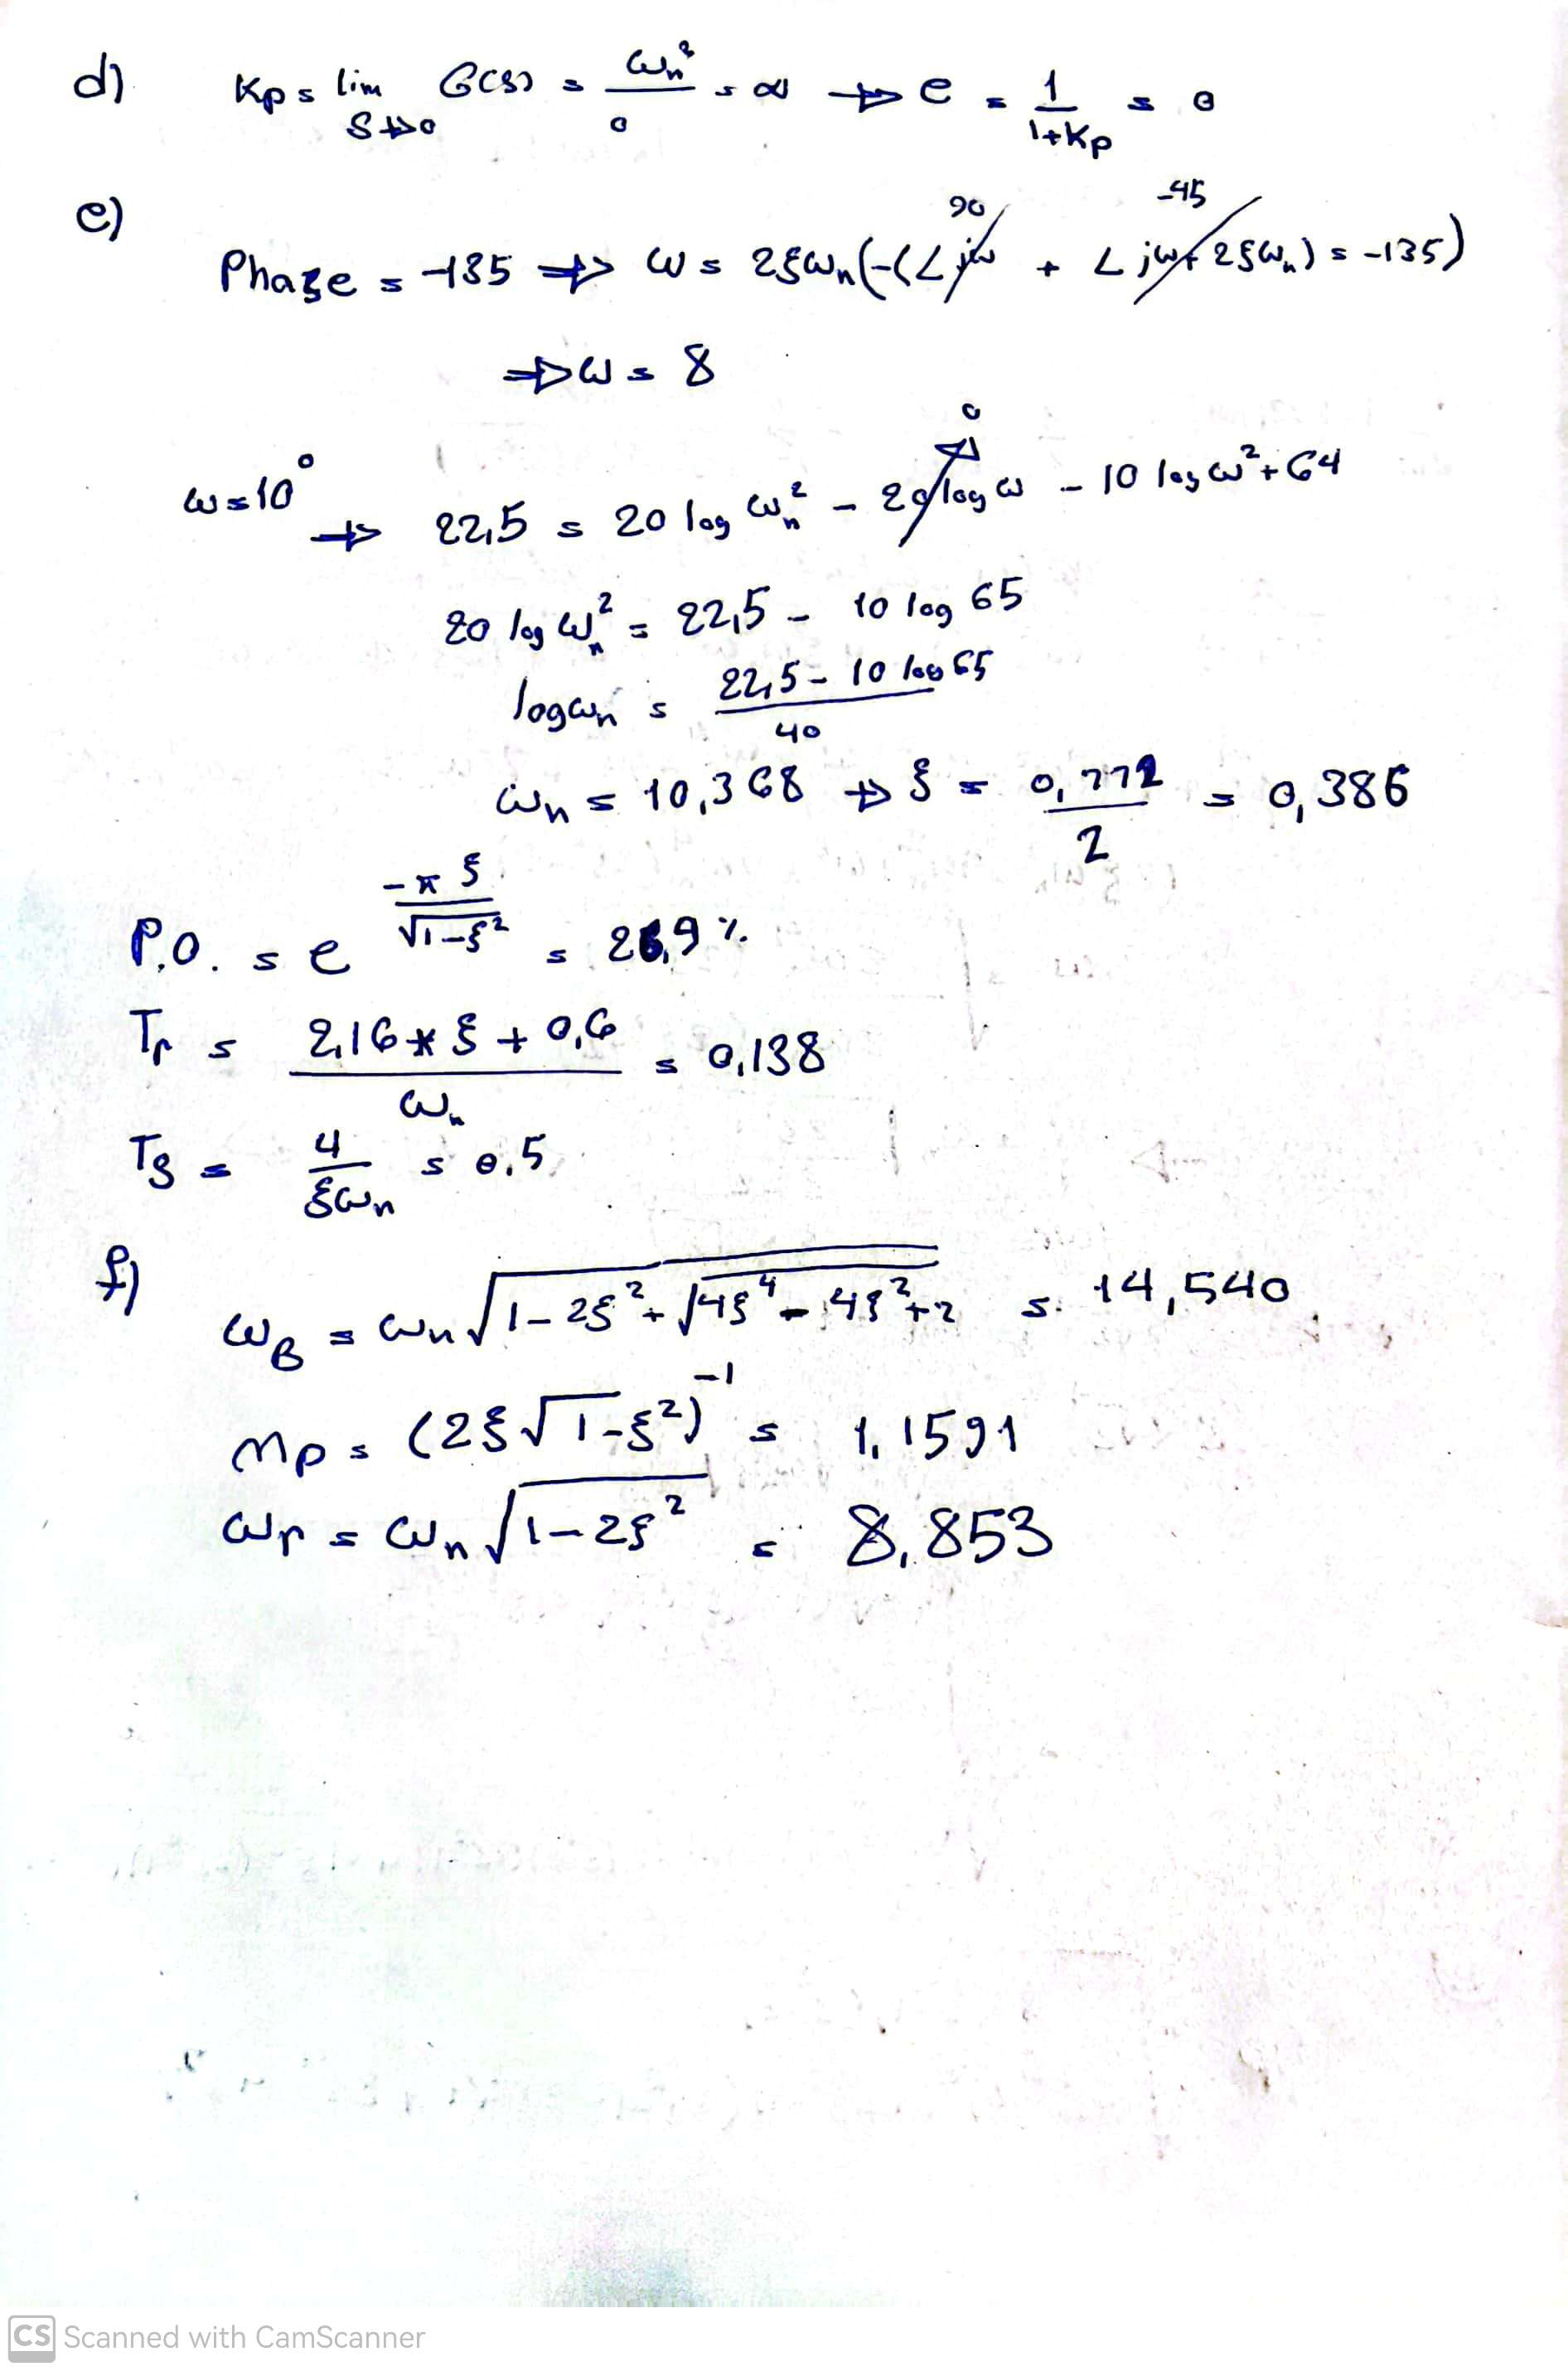 d) Kp = lim G(s) = ωn² / 0 = ∞ ⇒ e = 1 / 1+Kp = 0
s→0
e)
90 -45
Phase = -135 ⇒ ω = 2ξωn (-(∠jω + ∠jω+2ξωn) = -135)
⇒ ω = 8
0
ω=10⁰ ⇒ 22,5 = 20 log ωn² - 20 log ω - 10 log ω²+64
20 log ωn² = 22,5 - 10 log 65
log ωn = 22,5 - 10 log 65 / 40
ωn = 10,368 ⇒ ξ = 0,772 / 2 = 0,386
P.O. = e^(-πξ / √1-ξ²) = 26,9 %
Tr = 2,16*ξ + 0,6 / ωn = 0,138
Ts = 4 / ξωn = 0,5
f)
ωB = ωn √(1-2ξ²+√(4ξ⁴-4ξ²+2)) = 14,540
Mp = (2ξ√1-ξ²)⁻¹ = 1,1591
ωr = ωn √1-2ξ² = 8,853
CS Scanned with CamScanner